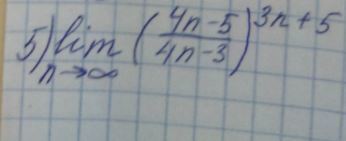 5) lim n→∞ ((4n-5)/(4n-3))^(3n+5)